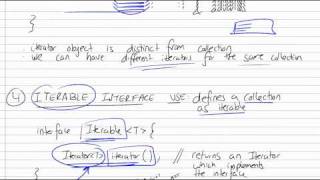 }
· iterator object is distinct from collection
· we can have different iterators for the same collection
④ ITERABLE INTERFACE USE defines a collection as iterable
interface Iterable<T> {
Iterator<T> iterator(); // returns an Iterator
which implements
the interface
}